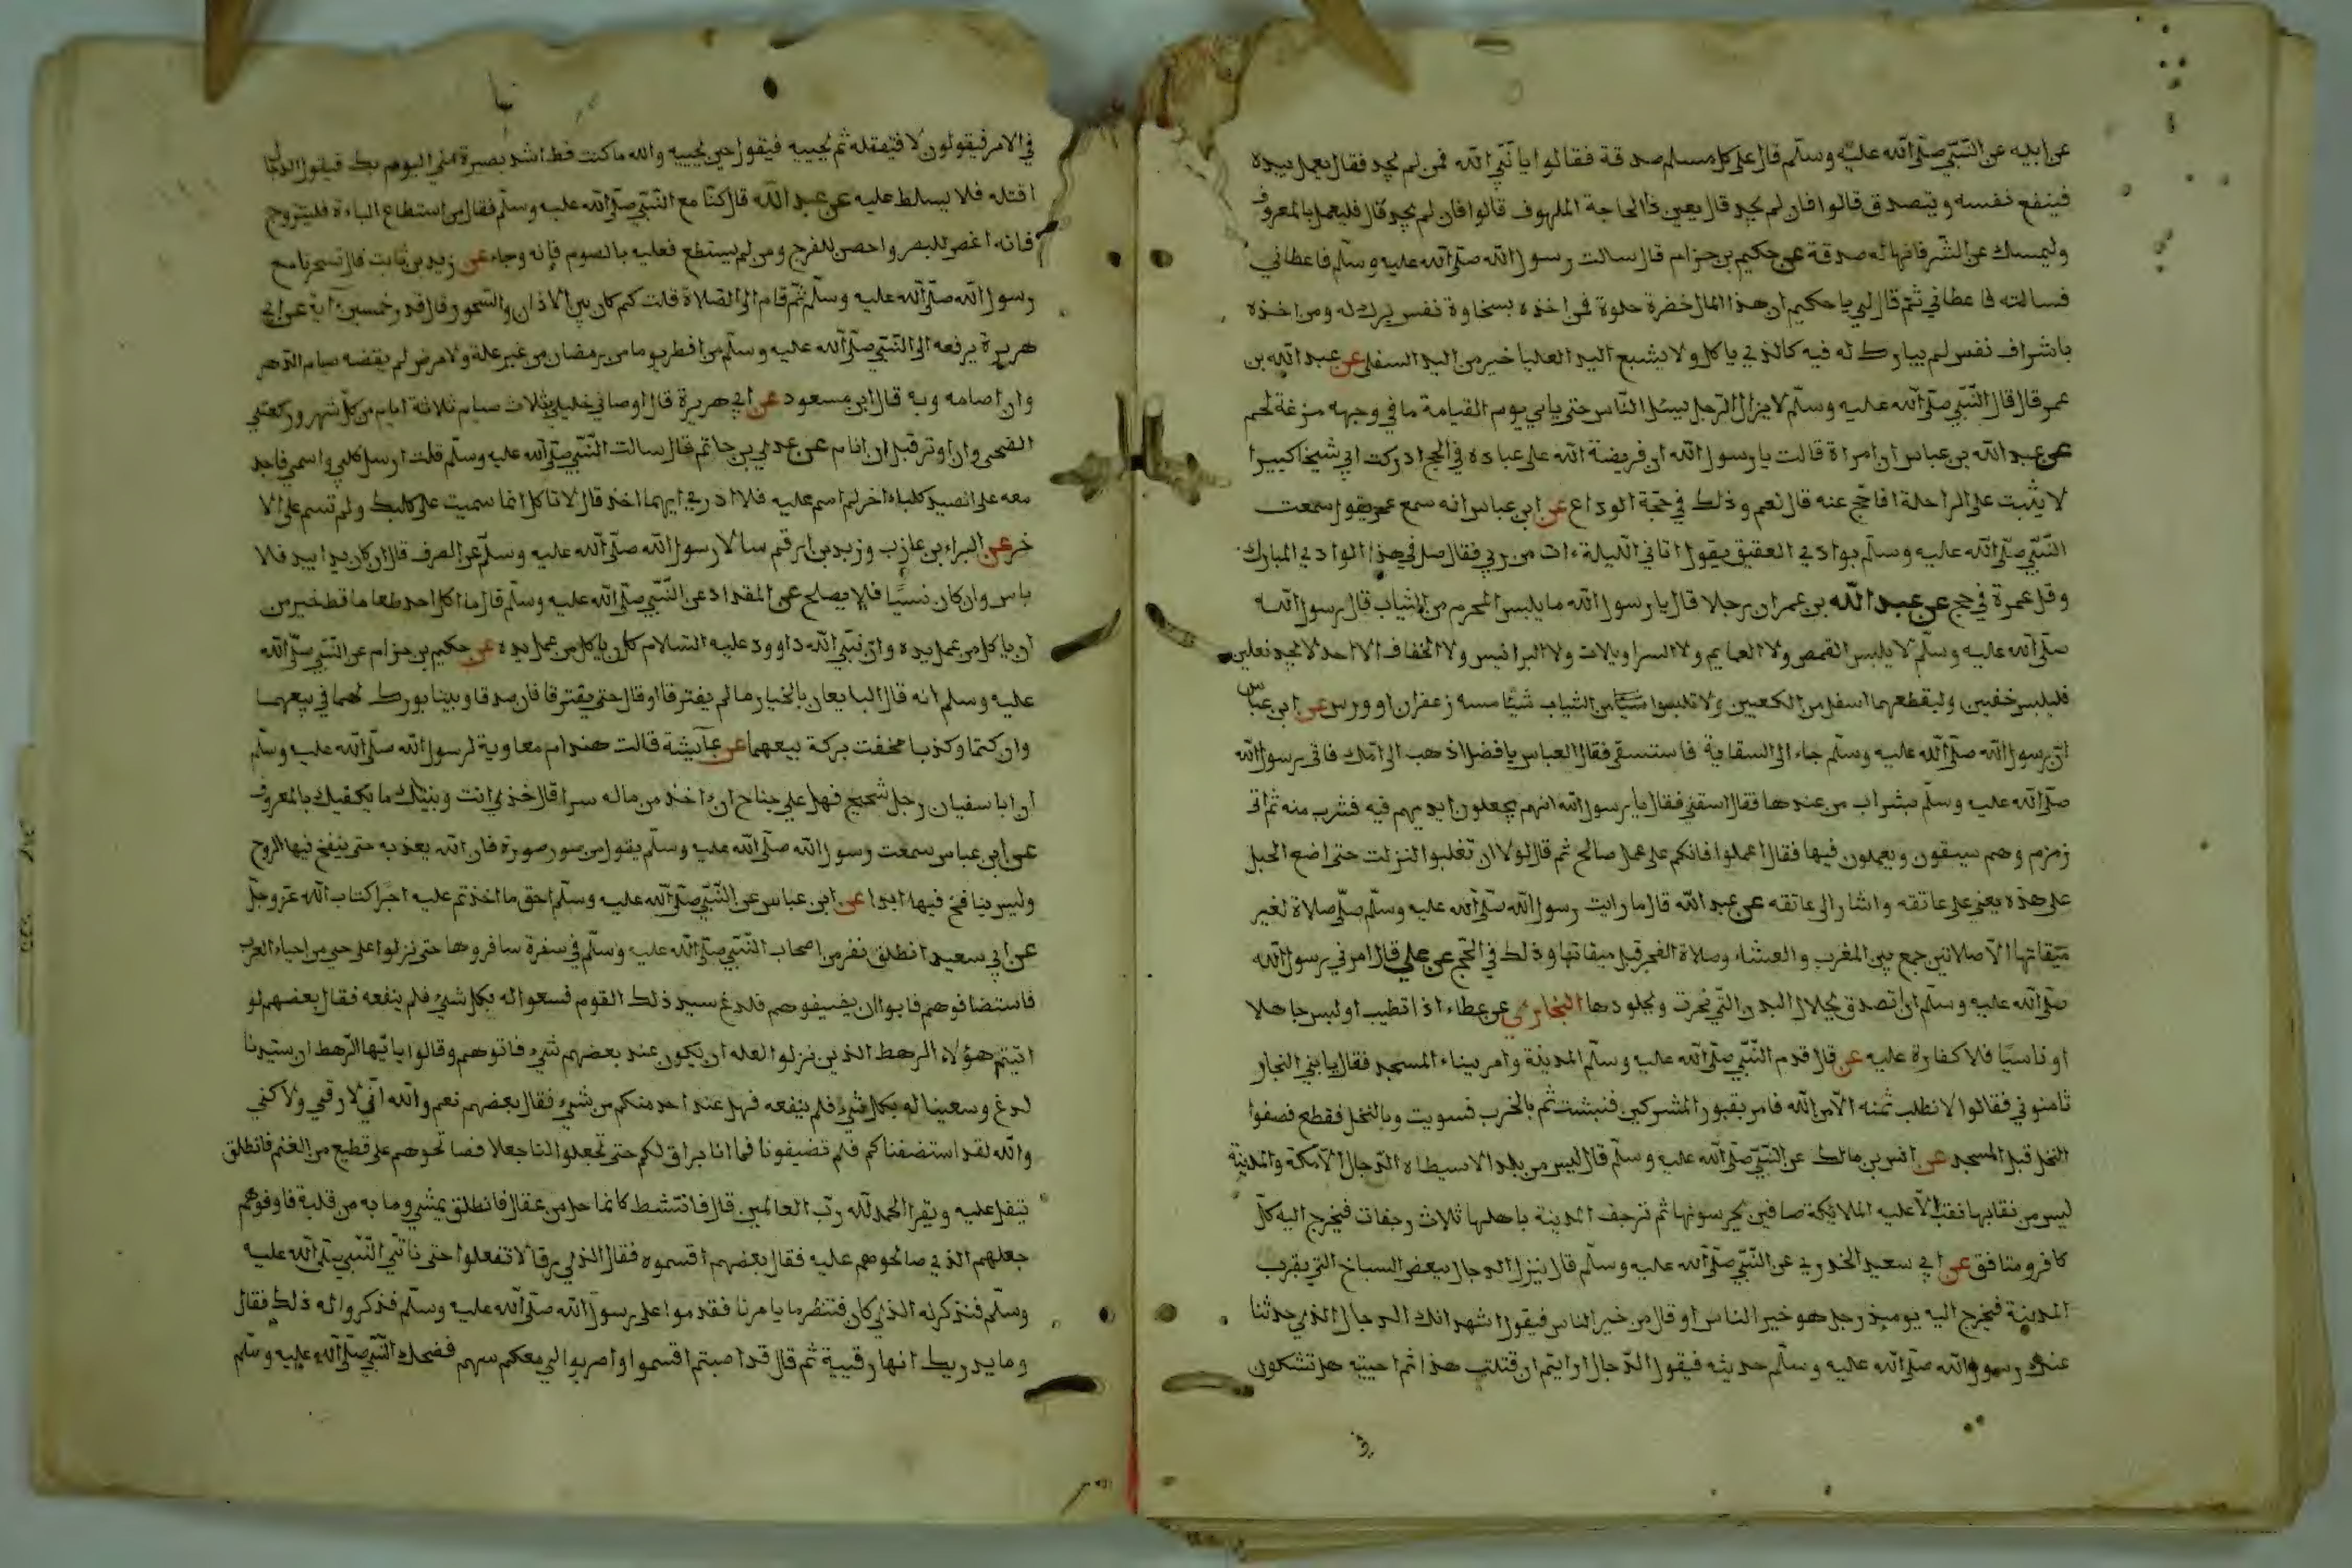 عن ابيه عن النّبيّ صلّى الله عليه وسلّم قال على كل مسلم صدقة فقالوا يا نبّي الله فمن لم يجد فقال يعمل بيده
فينفع نفسه ويتصدق قالوا فان لم يجد قال يعين ذا الحاجة الملهوف قالوا فان لم يجد قال فليعمل بالمعروف
وليمسك عن الشّر فانها له صدقة عن حكيم بن حزام قال سالت رسول الله صلّى الله عليه وسلّم فاعطاني
فسالته فاعطاني ثمّ قال لي يا حكيم ان هذا المال خضرة حلوة فمن اخذه بسخاوة نفس برك له ومن اخذه
باشراف نفس لم يبارك له فيه كالذي ياكل ولا يشبع اليد العليا خير من اليد السفلى عن عبد الله بن
عمر قال قال النّبيّ صلّى الله عليه وسلّم لا يزال الرّجل يسئل النّاس حتى ياتي يوم القيامة ما في وجهه مزغة لحم
عن عبد الله بن عباس ان امراة قالت يا رسول الله ان فريضة الله على عباده في الحج ادركت ابي شيخا كبيرا
لا يثبت على الراحلة افاحج عنه قال نعم وذلك في حجّة الوداع عن ابن عباس انه سمع عمر يقول سمعت
النّبيّ صلّى الله عليه وسلّم بوادي العقيق يقول اتاني اللّيلة ءات من ربي فقال صل في هذا الوادي المبارك
وقل عمرة في حج عن عبد الله بن عمر ان رجلا قال يا رسول الله ما يلبس المحرم من الثياب قال رسول الله
صلّى الله عليه وسلّم لا يلبس القمص ولا العمايم ولا السراويلات ولا البرانيس ولا الخفاف الا احد لا يجد نعلين
فليلبس خفين وليقطعهما اسفل من الكعبين ولا تلبسوا من الثياب شيئا مسه زعفران او ورس عن ابن عباس
انّ رسول الله صلّى الله عليه وسلّم جاء الى السقاية فاستسقى فقال العباس يا فضل اذهب الى امّك فات رسول الله
صلّى الله عليه وسلّم بشراب من عندها فقال اسقني فقال يا رسول الله انهم يجعلون ايديهم فيه فشرب منه ثم اتى
زمزم وهم يسقون ويعملون فيها فقال اعملوا فانكم على عمل صالح ثم قال لولا ان تغلبوا لنزلت حتى اضع الحبل
على هذه يعني على عاتقه واشار الى عاتقه عن عبد الله قال ما رايت رسول الله صلّى الله عليه وسلّم صلّى صلاة لغير
ميقاتها الّا صلاتين جمع بين المغرب والعشاء وصلاة الفجر قبل ميقاتها وذلك في الحجّ عن علي قال امرني رسول الله
صلّى الله عليه وسلّم ان اتصدق بجلال البدن الّتي نحرت وبجلودها البخاري عن عطاء اذا تطيب او لبس جاهلا
او ناسيًا فلا كفارة عليه عن قال قدم النّبيّ صلّى الله عليه وسلّم المدينة وامر ببناء المسجد فقال يا بني النجار
ثامنوني فقالوا لا نطلب ثمنه الّا من الله فامر بقبور المشركين فنبشت ثم بالخرب فسويت وبالنخل فقطع فصفوا
النخل قبل المسجد عن انس بن مالك عن النّبيّ صلّى الله عليه وسلّم قال ليس من بلد الا سيطاه الدّجال الا مكة والمدينة
ليس من نقابها نقب الّا عليه الملائكة صافين يحرسونها ثم ترجف المدينة باهلها ثلاث رجفات فيخرج اليه كلّ
كافر ومنافق عن ابي سعيد الخدري عن النّبيّ صلّى الله عليه وسلّم قال ينزل الدجال ببعض السباخ التي بقرب
المدينة فيخرج اليه يوميذ رجل هو خير الناس او قال من خير الناس فيقول اشهد انك الدجال الذي حدثنا
عنك رسول الله صلّى الله عليه وسلّم حديثه فيقول الدّجال ارايتم ان قتلت هذا ثم احييته هل تشكون
في
في الامر فيقولون لا فيقتله ثم يحييه فيقول حين يحييه والله ما كنت قط اشد بصيرة منّي اليوم بك فيقول الدجّال
اقتله فلا يسلط عليه عن عبد الله قال كنّا مع النّبيّ صلّى الله عليه وسلّم فقال من استطاع الباءة فليتزوج
فانه اغض للبصر واحصن للفرج ومن لم يستطع فعليه بالصوم فإنه وجاء عن زيد بن ثابت قال تسحرنا مع
رسول الله صلّى الله عليه وسلّم ثمّ قام الى الصّلاة قلت كم كان بين الاذان والسّحور قال قدر خمسين آية عن ابي
هريرة يرفعه الى النّبيّ صلّى الله عليه وسلّم من افطر يوما من رمضان من غير علة ولا مرض لم يقضه صيام الدّهر
وان صامه وبه قال ابن مسعود عن ابي هريرة قال اوصاني خليلي بثلاث صيام ثلاثة ايام من كلّ شهر وركعتي
الضحى وان اوتر قبل ان انام عن عدي بن حاتم قال سالت النّبيّ صلّى الله عليه وسلّم قلت ارسل كلبي واسمي فاجد
معه على الصيد كلبا ءاخر لم اسم عليه فلا ادري ايهما اخذ قال لا تاكل انما سميت على كلبك ولم تسم على الا
خر عن البراء بن عازب وزيد بن ارقم سالا رسول الله صلّى الله عليه وسلّم عن الصرف قال ان كان يدا بيد فلا
باس وان كان نسيًا فلا يصلح عن المقداد عن النّبيّ صلّى الله عليه وسلّم قال ما اكل احد طعاما قط خير من
ان ياكل من عمل يده وانّ نبّي الله داوود عليه السّلام كان ياكل من عمل يده عن حكيم بن حزام عن النّبيّ صلّى الله
عليه وسلم انه قال البايعان بالخيار ما لم يفترقا او قال حتى يفترقا فان صدقا وبينا بورك لهما في بيعهما
وان كتما وكذبا محقت بركة بيعهما عن عآيشة قالت هند ام معاوية لرسول الله صلّى الله عليه وسلّم
ان ابا سفيان رجل شحيح فهل علي جناح ان ءاخذ من ماله سرا قال خذي انت وبنيك ما يكفيك بالمعروف
عن ابن عباس سمعت رسول الله صلّى الله عليه وسلّم يقول من صور صورة فان الله يعذبه حتى ينفخ فيها الروح
وليس بنافخ فيها ابدا عن ابن عباس عن النّبيّ صلّى الله عليه وسلّم احق ما اخذتم عليه اجرًا كتاب الله عزّ وجلّ
عن ابي سعيد انطلق نفر من اصحاب النّبيّ صلّى الله عليه وسلّم في سفرة سافروها حتى نزلوا على حي من احياء العرب
فاستضافوهم فابوا ان يضيفوهم فلدغ سيد ذلك القوم فسعوا له بكل شيء فلم ينفعه فقال بعضهم لو
اتيتم هؤلاء الرهط الذين نزلوا لعله ان يكون عند بعضهم شيء فاتوهم وقالوا يا ايّها الرّهط ان سيدنا
لدغ وسعينا له بكل شيء فلم ينفعه فهل عند احد منكم من شيء فقال بعضهم نعم والله انّي لارقي ولاكني
والله لقد استضفناكم فلم تضيفونا فما انا براق لكم حتى تجعلوا لنا جعلا فصالحوهم على قطيع من الغنم فانطلق
يتفل عليه ويقرا الحمد لله ربّ العالمين قال فانتشط كانما حل من عقال فانطلق يمشي وما به من قلبة فاوفوهم
جعلهم الذي صالحوهم عليه فقال بعضهم اقسموه فقال الذي رقا لا تفعلوا حتى ناتي النّبي صلّى الله عليه
وسلّم فنذكر له الذي كان فننظر ما يامرنا فقدموا على رسول الله صلّى الله عليه وسلّم فذكروا له ذلك فقال
وما يدريك انها رقيية ثم قال قد اصبتم اقسموا واضربوا لي معكم سهم فضحك النّبيّ صلّى الله عليه وسلّم